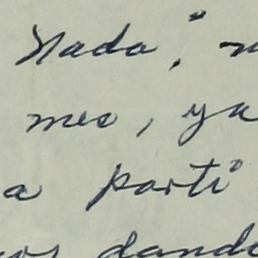 Nada," 
mes, ya
a parti
dando